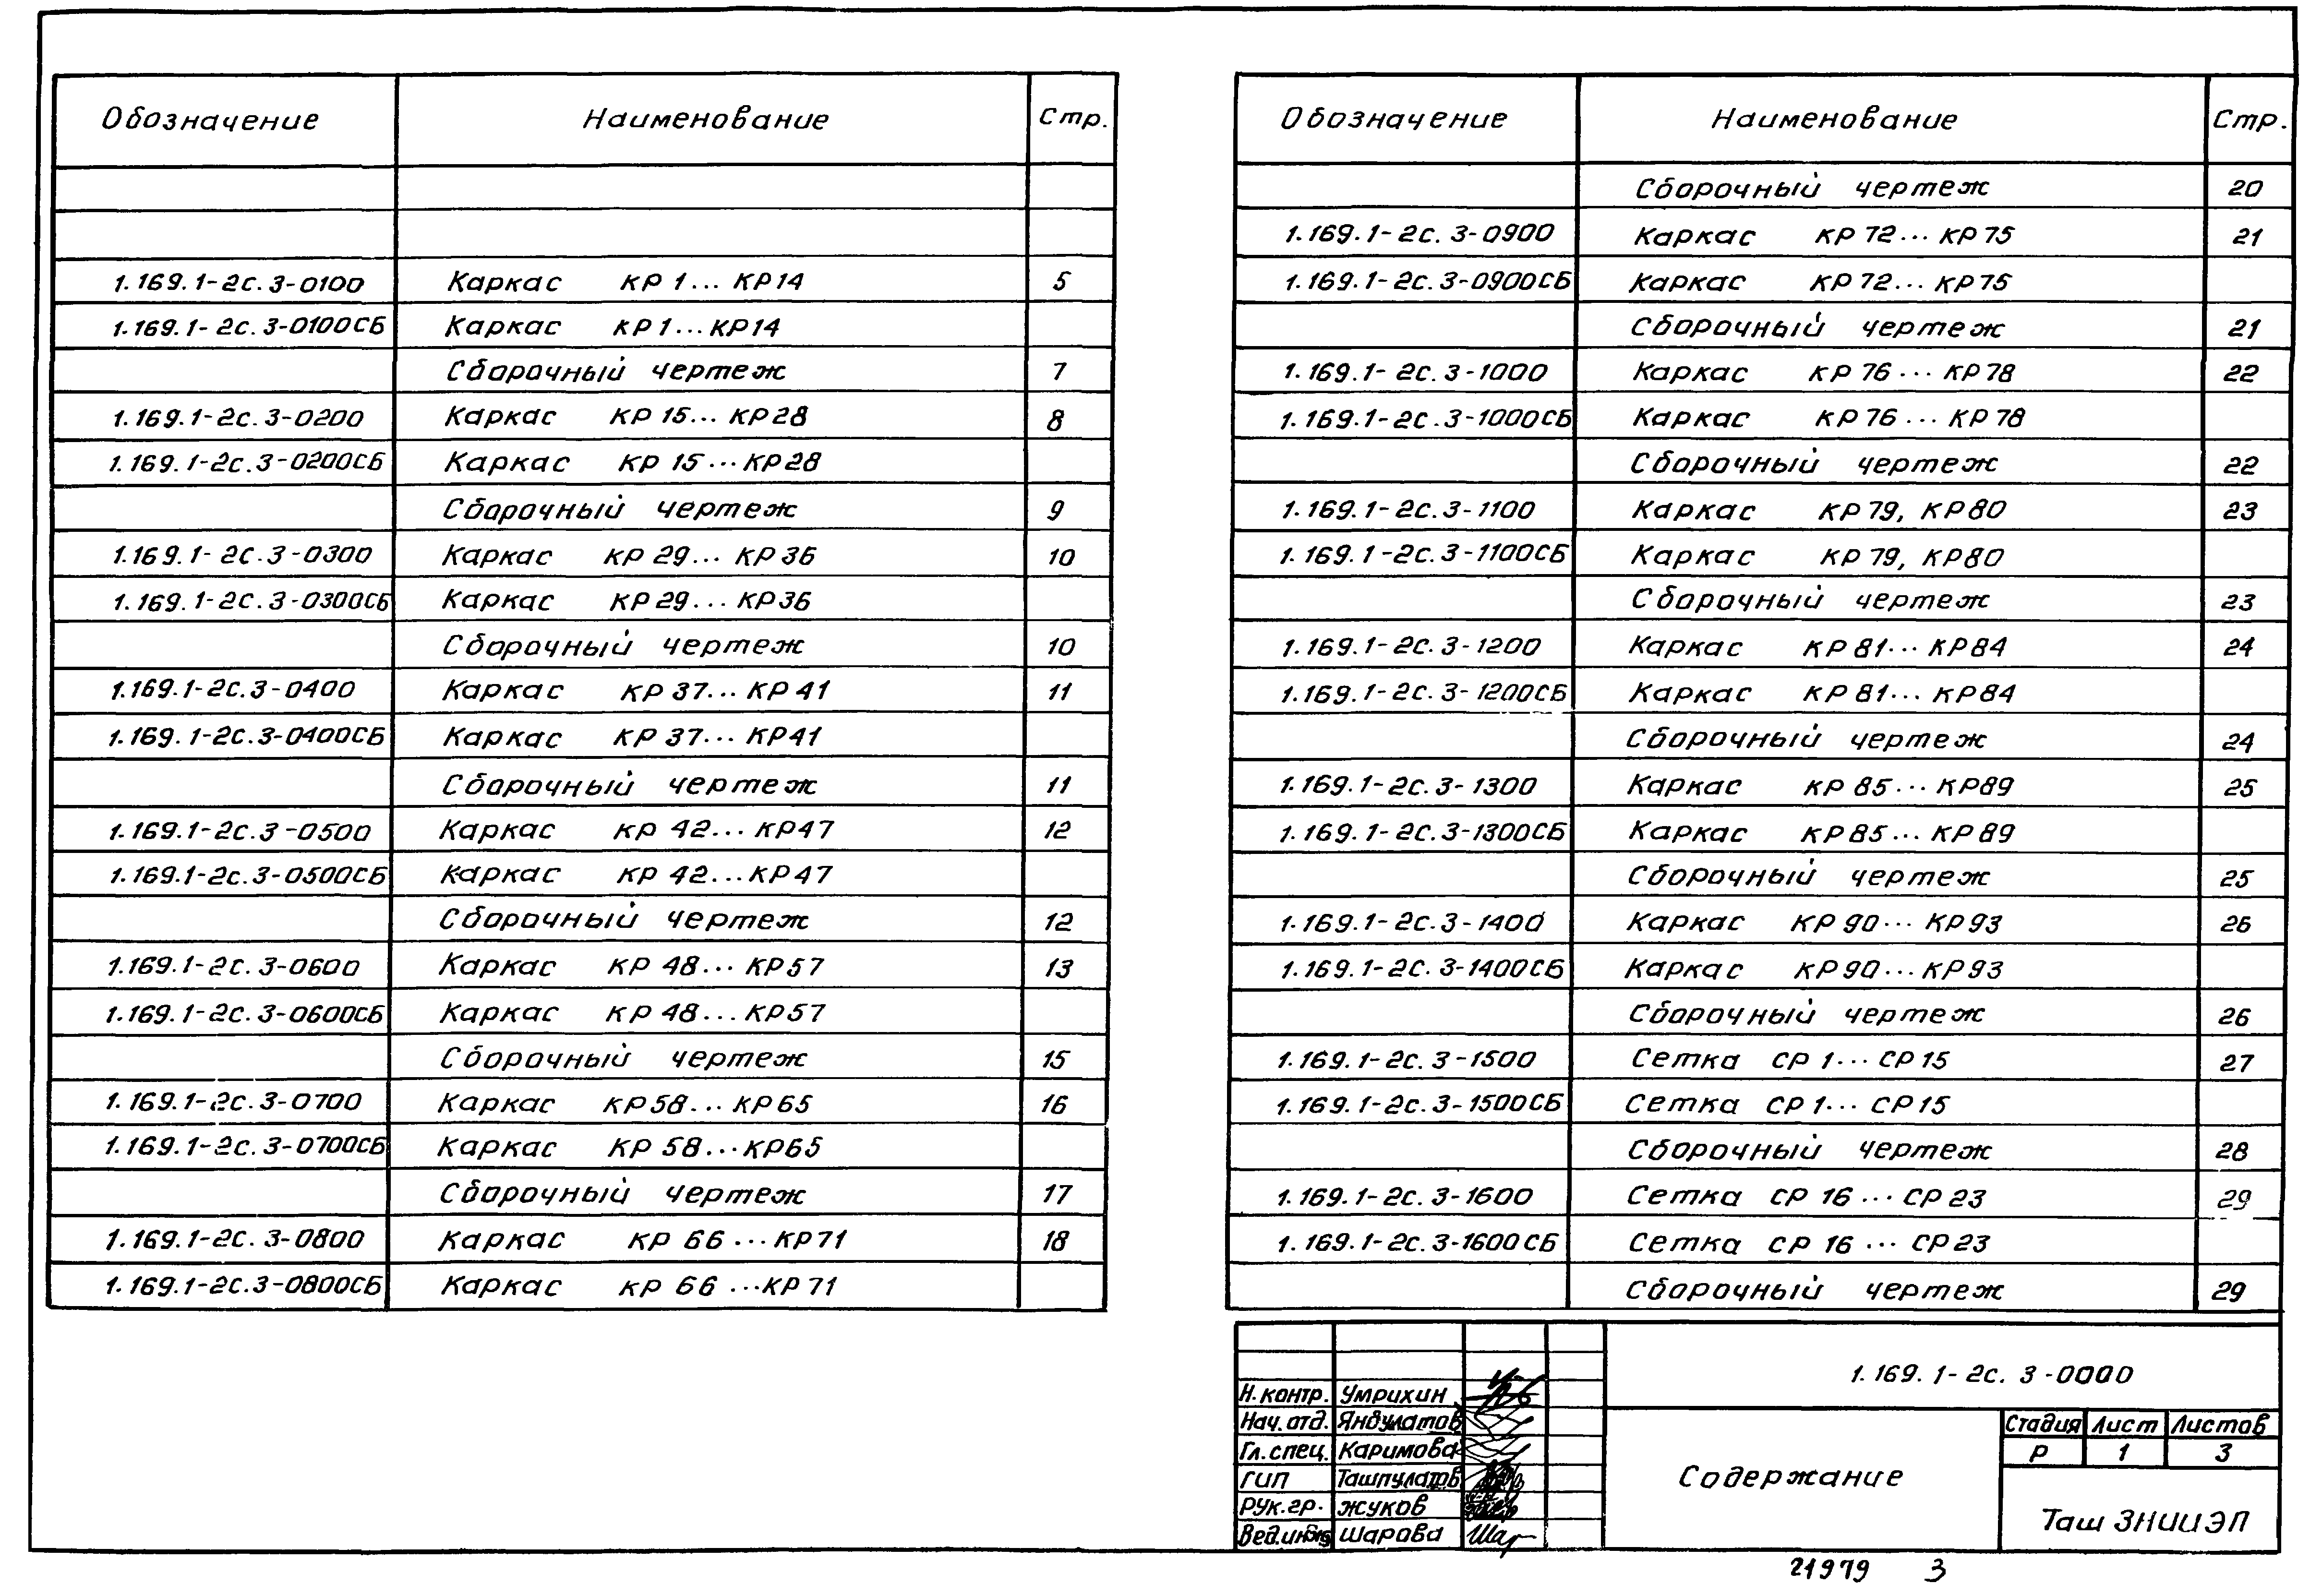 Обозначение Наименование Стр.
1.169.1-2с.3-0100 Каркас КР 1...КР14 5
1.169.1-2с.3-0100СБ Каркас КР1...КР14
Сборочный чертеж 7
1.169.1-2с.3-0200 Каркас КР 15...КР28 8
1.169.1-2с.3-0200СБ Каркас КР 15...КР28
Сборочный чертеж 9
1.169.1-2с.3-0300 Каркас КР 29...КР36 10
1.169.1-2с.3-0300СБ Каркас КР29...КР36
Сборочный чертеж 10
1.169.1-2с.3-0400 Каркас КР 37...КР41 11
1.169.1-2с.3-0400СБ Каркас КР 37...КР41
Сборочный чертеж 11
1.169.1-2с.3-0500 Каркас КР 42...КР47 12
1.169.1-2с.3-0500СБ Каркас КР 42...КР47
Сборочный чертеж 12
1.169.1-2с.3-0600 Каркас КР 48...КР57 13
1.169.1-2с.3-0600СБ Каркас КР 48...КР57
Сборочный чертеж 15
1.169.1-2с.3-0700 Каркас КР58...КР65 16
1.169.1-2с.3-0700СБ Каркас КР 58...КР65
Сборочный чертеж 17
1.169.1-2с.3-0800 Каркас КР 66...КР71 18
1.169.1-2с.3-0800СБ Каркас КР 66...КР71
Обозначение Наименование Стр.
Сборочный чертеж 20
1.169.1-2с.3-0900 Каркас КР 72...КР75 21
1.169.1-2с.3-0900СБ Каркас КР 72...КР75
Сборочный чертеж 21
1.169.1-2с.3-1000 Каркас КР 76...КР78 22
1.169.1-2с.3-1000СБ Каркас КР 76...КР78
Сборочный чертеж 22
1.169.1-2с.3-1100 Каркас КР79, КР80 23
1.169.1-2с.3-1100СБ Каркас КР79, КР80
Сборочный чертеж 23
1.169.1-2с.3-1200 Каркас КР81...КР84 24
1.169.1-2с.3-1200СБ Каркас КР81...КР84
Сборочный чертеж 24
1.169.1-2с.3-1300 Каркас КР 85...КР89 25
1.169.1-2с.3-1300СБ Каркас КР85...КР89
Сборочный чертеж 25
1.169.1-2с.3-1400 Каркас КР 90...КР93 26
1.169.1-2с.3-1400СБ Каркас КР90...КР93
Сборочный чертеж 26
1.169.1-2с.3-1500 Сетка СР 1...СР15 27
1.169.1-2с.3-1500СБ Сетка СР 1...СР15
Сборочный чертеж 28
1.169.1-2с.3-1600 Сетка СР 16...СР23 29
1.169.1-2с.3-1600СБ Сетка СР 16...СР23
Сборочный чертеж 29
1.169.1-2с.3-0000
Н.контр. Умрихин
Нач.отд. Яндулатов
Гл.спец. Каримова
ГИП Ташпулатов
Рук.гр. Жуков
Вед.инж Шарова
Содержание
Стадия Лист Листов
Р 1 3
ТашЗНИИЭП
21979 3